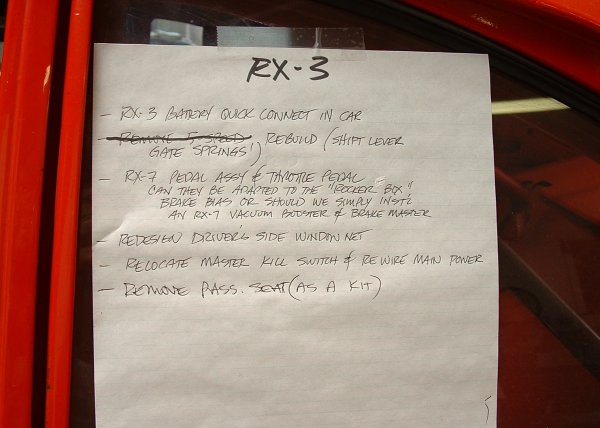 RX-3
- RX-3 BATTERY QUICK CONNECT IN CAR
- REMOVE 5-SPEED REBUILD (SHIFT LEVER
GATE SPRINGS)
- RX-7 PEDAL ASSY & THROTTLE PEDAL
CAN THEY BE ADAPTED TO THE "ROCKER BOX"
BRAKE BIAS OR SHOULD WE SIMPLY INSTL
AN RX-7 VACUUM BOOSTER & BRAKE MASTER
- REDESIGN DRIVER'S SIDE WINDOW NET
- RELOCATE MASTER KILL SWITCH & REWIRE MAIN POWER
- REMOVE PASS. SEAT (AS A KIT)